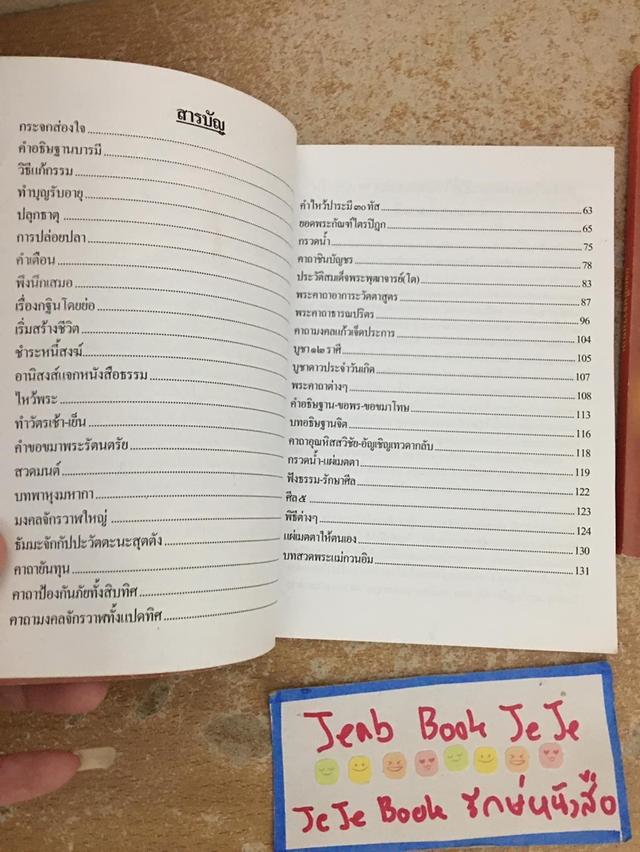 สารบัญ
กระจกส่องใจ
คำอธิษฐานบารมี
วิธีแก้กรรม
ทำบุญรับอายุ
ปลุกธาตุ
การปล่อยปลา
คำเตือน
พึงนึกเสมอ
เรื่องกฐินโดยย่อ
เริ่มสร้างชีวิต
ชำระหนี้สงฆ์
อานิสงส์แจกหนังสือธรรม
ไหว้พระ
ทำวัตรเช้า-เย็น
คำขอขมาพระรัตนตรัย
สวดมนต์
บทพาหุงมหากา
มงคลจักรวาฬใหญ่
ธัมมะจักกัปปะวัตตะนะสุตตัง
คาถายันทุน
คาถาป้องกันภัยทั้งสิบทิศ
คาถามงคลจักรวาฬทั้งแปดทิศ
คำไหว้ปาระมี ๓๐ ทัส 63
ยอดพระกัณฑ์ไตรปิฎก 65
กรวดน้ำ 75
คาถาชินบัญชร 78
ประวัติสมเด็จพระพุฒาจารย์(โต) 83
พระคาถาอาการะวัตตาสูตร 87
พระคาถาธารณปริตร 96
คาถามงคลแก้วเจ็ดประการ 104
บูชา ๑๒ ราศี 105
บูชาดาวประจำวันเกิด 107
พระคาถาต่างๆ 108
คำอธิษฐาน-ขอพร-ขอขมาโทษ 113
บทอธิษฐานจิต 116
คาถาอุณหิสสวิชัย-อัญเชิญเทวดากลับ 118
กรวดน้ำ-แผ่เมตตา 119
ฟังธรรม-รักษาศีล 122
ศีล ๕ 123
พิธีต่างๆ 124
แผ่เมตตาให้ตนเอง 130
บทสวดพระแม่กวนอิม 131
Jenb Book JeJe
JeJe Book รักษ์หนังสือ